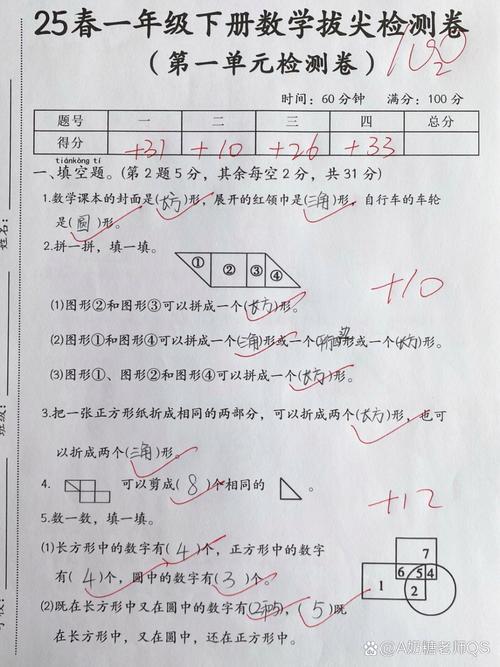 25春一年级下册数学拔尖检测卷
(第一单元检测卷)
100
时间:60分钟 满分:100分
题号 一 二 三 四 总分
得分 +31 +10 +26 +33
tiánkòng tí
一、填空题。(第2题5分,其余每空2分,共31分)
1.数学课本的封面是(长方)形,展开的红领巾是(三角)形,自行车的车轮
是(圆)形。
2.拼一拼,填一填。
① ② ③ ④
+10
(1)图形②和图形③可以拼成一个(长方)形。
(2)图形①和图形④可以拼成一个(三角)形或一个平行四边形或一个(长方)形。
(3)图形①、图形②和图形④可以拼成一个(长方)形。
3.把一张正方形纸折成相同的两部分,可以折成两个(长方)形,也可
以折成两个(三角)形。
4. 可以剪成(8)个相同的 。
+12
5.数一数,填一填。
(1)长方形中的数字有(4)个,正方形中的数字
有(4)个,圆中的数字有(3)个。
7
6 5 4
1 2
(2)既在长方形中又在圆中的数字有(2和5),(5)既
在长方形中,又在圆中,还在正方形中。
姓名:
班级:
学校:
@A奶糖老师QS